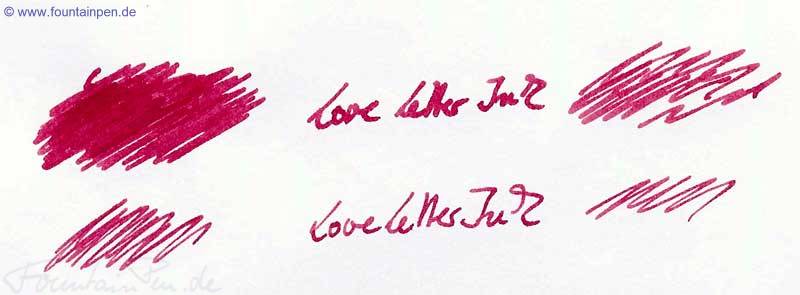 © www.fountainpen.de
Love Letter Ink
Love Letter Ink
FountainPen.de